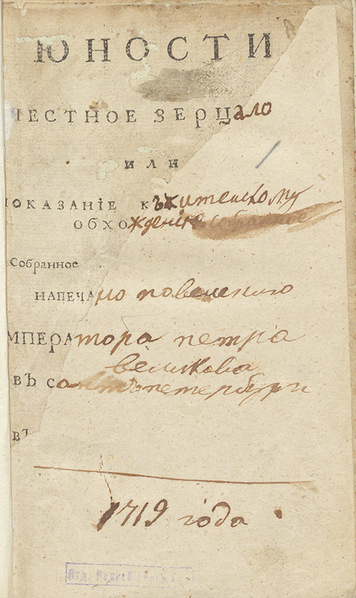 ЮНОСТИ
ЧЕСТНОЕ ЗЕРЦало
ИЛИ
ПОКАЗАНІЕ Къ житейскому
ОБХОждению собранное
Собранное
НАПЕЧАно повелению
ИМПЕРАтора петра
великова
ВЪ Санктъпетербурги
ВЪ
1719 года